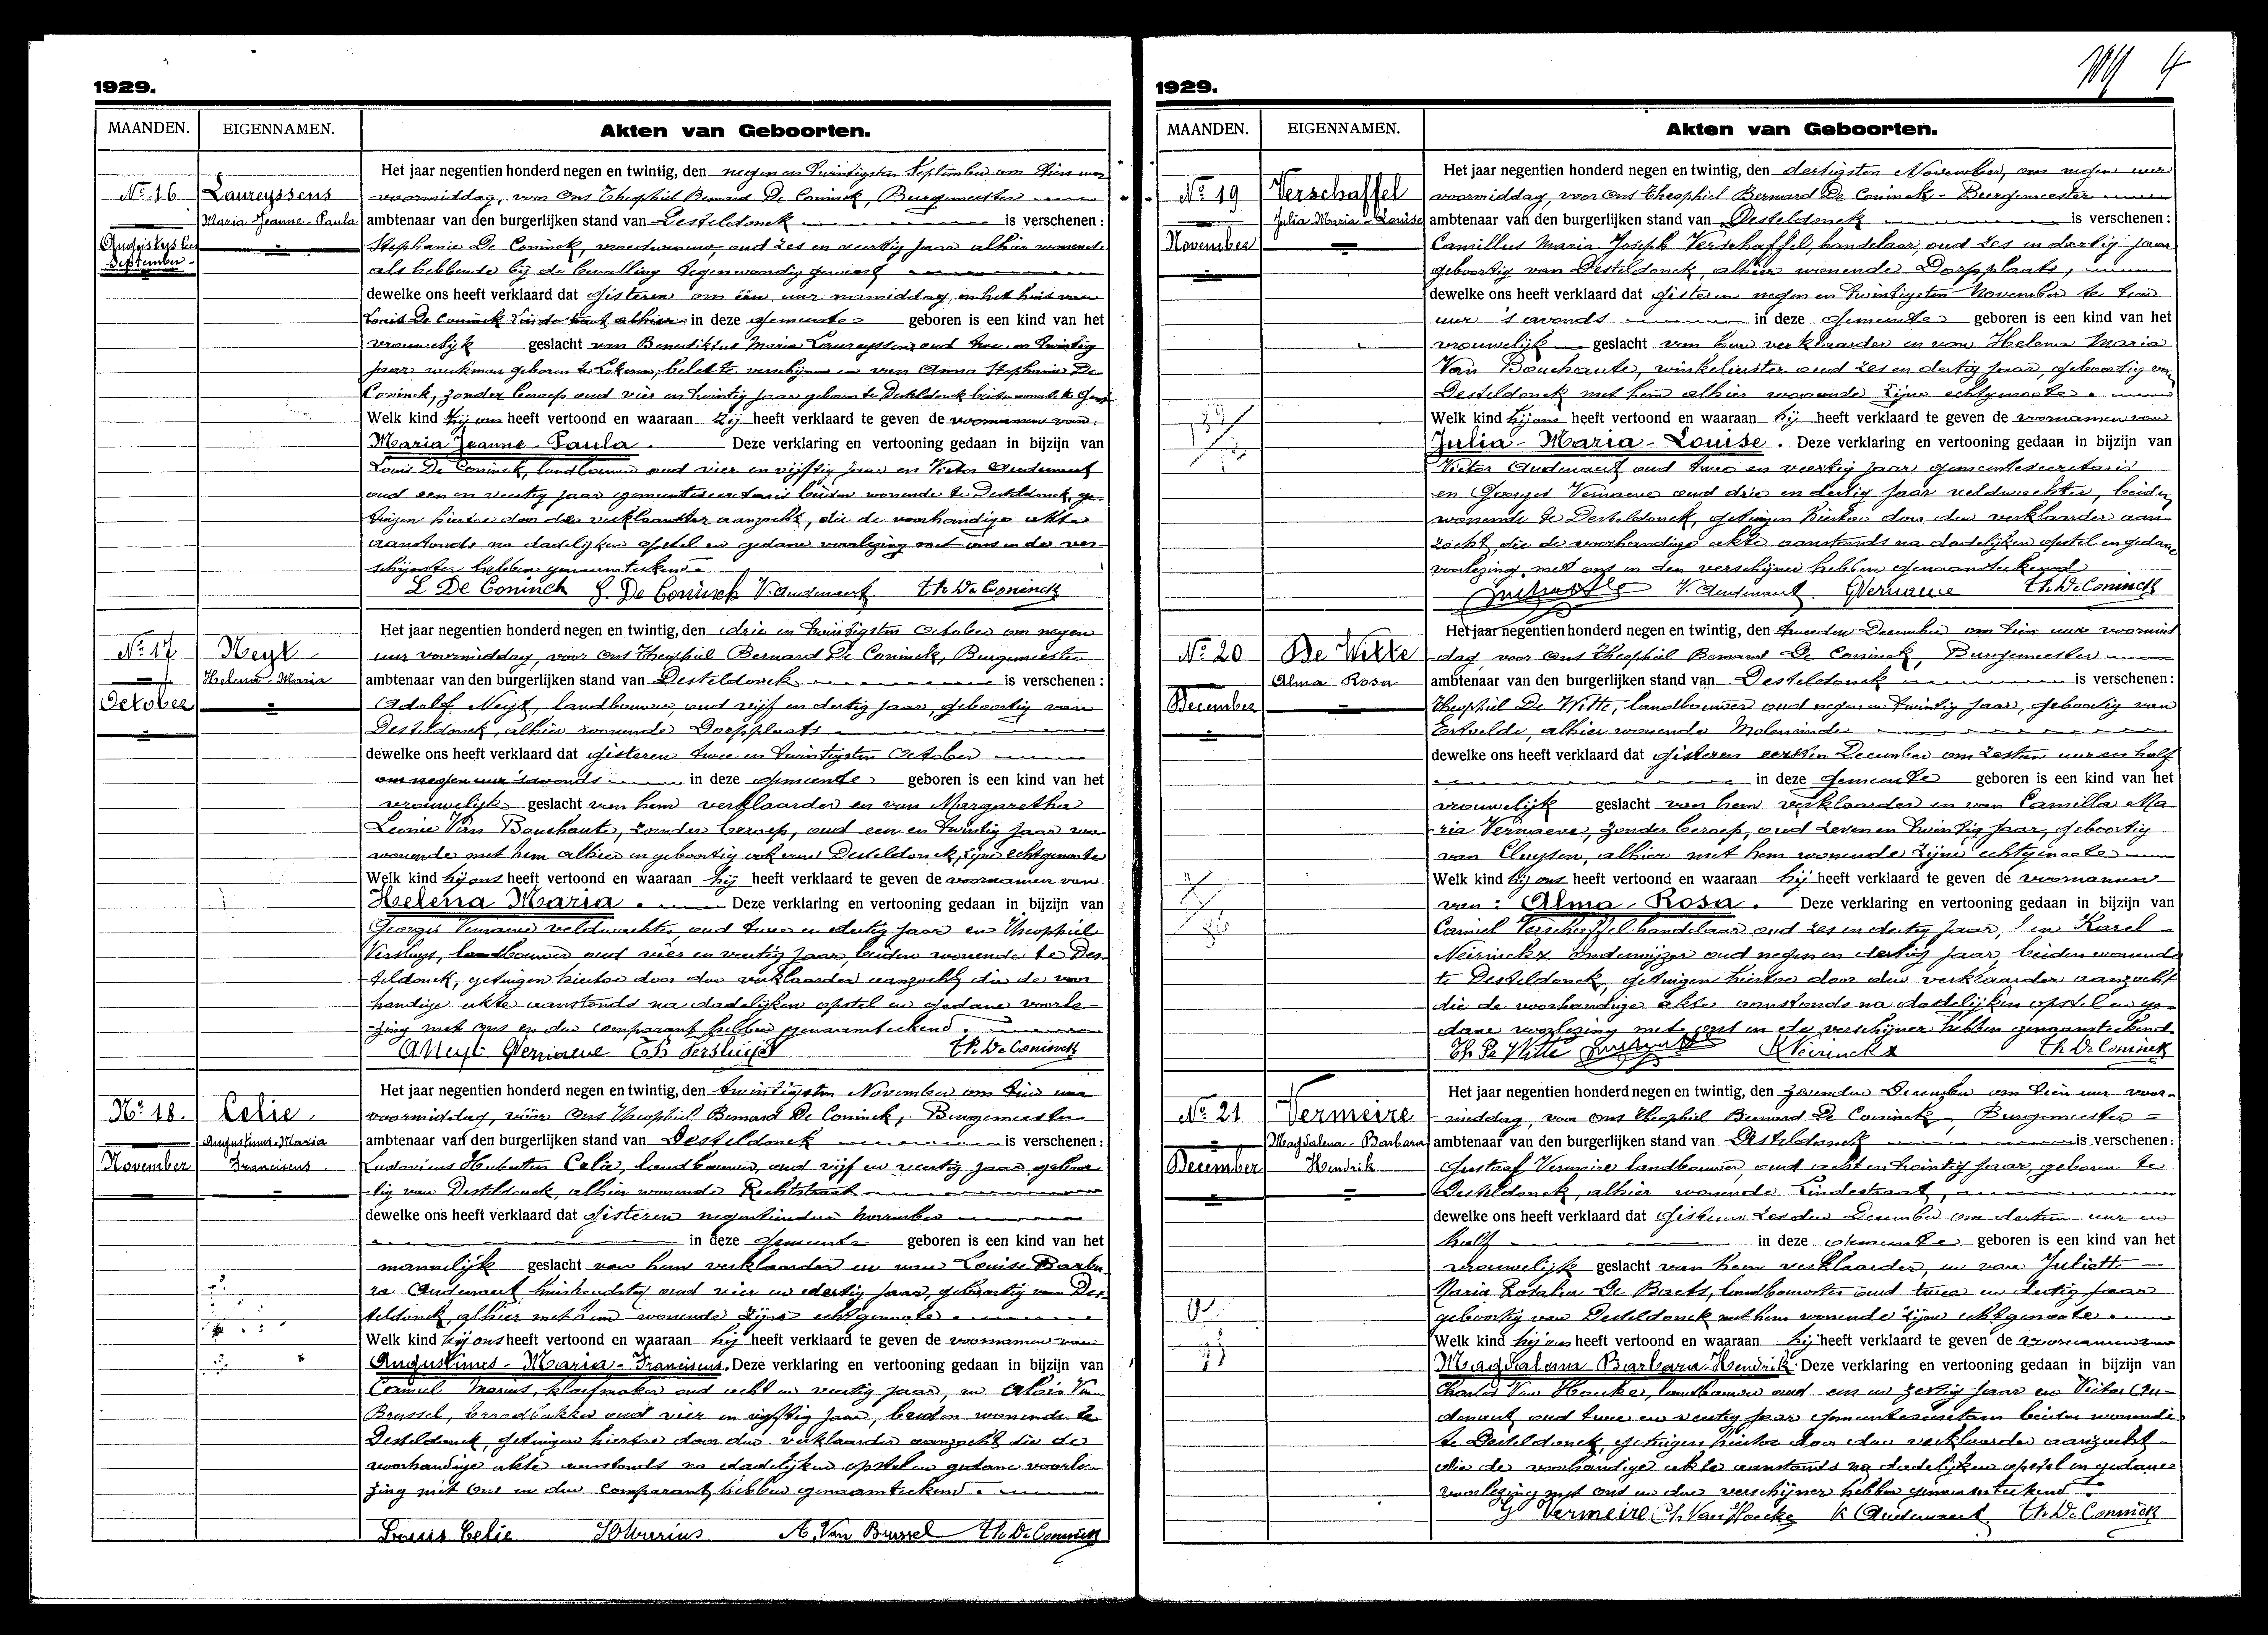 1929.
MAANDEN. EIGENNAMEN. Akten van Geboorten.
Het jaar negentien honderd negen en twintig, den negen en twintigsten September om tien uur
No 16 Laureyssens voormiddag, voor Ons Theophiel Bernard De Coninck, Burgemeester
Maria Jeanne-Paula ambtenaar van den burgerlijken stand van Desteldonck is verschenen :
September Stephanie De Coninck, vroedvrouw, oud zes en veertig jaar alhier wonende
als hebbende bij de bevalling tegenwoordig geweest
dewelke ons heeft verklaard dat gisteren om één uur namiddag, in het huis van
Louis De Coninck alhier in deze gemeente geboren is een kind van het
vrouwelijk geslacht van Benediktus Maria Laureyssens, oud twee en twintig
jaar werkman geboren te Lokeren, belet te verschijnen en van Anna Stephanie De
Coninck, zonder beroep oud vier en twintig jaar geboren te Desteldonck
Welk kind zij ons heeft vertoond en waaraan zij heeft verklaard te geven de voornamen van
Maria Jeanne-Paula. Deze verklaring en vertooning gedaan in bijzijn van
Louis De Coninck, landbouwer oud vier en vijftig jaar en Victor Audenaert
oud een en veertig jaar gemeentesecretaris beiden wonende te Desteldonck, ge-
tuigen hiertoe door de verklaarster aanzocht, die de voorhandige akte
aanstonds na dadelijken opstel en gedane voorlezing met ons en de ver-
schijnster hebben genaamteekend.
L De Coninck S. De Coninck V. Audenaert Th. De Coninck
Het jaar negentien honderd negen en twintig, den drie en twintigsten October om negen
No 17 Neyt uur voormiddag, voor Ons Theophiel Bernard De Coninck, Burgemeester
Helena-Maria ambtenaar van den burgerlijken stand van Desteldonck is verschenen :
October Adolf Neyt, landbouwer, oud vijf en dertig jaar, geboortig van
Desteldonck, alhier wonende Dorpplaats
dewelke ons heeft verklaard dat gisteren twee en twintigsten October
om negen uur 's avonds in deze gemeente geboren is een kind van het
vrouwelijk geslacht van hem verklaarder en van Margaretha
Leonie Van Bouchaute, zonder beroep, oud een en twintig jaar wo-
wonende met hem alhier en geboortig ook van Desteldonck, zijne echtgenoote
Welk kind hij ons heeft vertoond en waaraan hij heeft verklaard te geven de voornamen van
Helena Maria. Deze verklaring en vertooning gedaan in bijzijn van
Georges Vernaeve veldwachter oud twee en dertig jaar en Theophiel
Versluys, landbouwer oud vier en veertig jaar, beiden wonende te Des-
teldonck, getuigen hiertoe door den verklaarder aanzocht, die de voor-
handige akte aanstonds na dadelijken opstel en gedane voorle-
zing met ons en den comparant hebben genaamteekend.
A Neyt GVernaeve Th Versluys Th. De Coninck
Het jaar negentien honderd negen en twintig, den twintigsten November om tien uur
No 18. Celie voormiddag, vóór Ons Theophiel Bernard De Coninck, Burgemeester
Augustinus-Maria ambtenaar van den burgerlijken stand van Desteldonck is verschenen :
November Franciscus Ludovicus Hubertus Celie, landbouwer, oud vijf en veertig jaar geboor-
tig van Desteldonck, alhier wonende Rechtstraat
dewelke ons heeft verklaard dat gisteren negentienden November
in deze gemeente geboren is een kind van het
mannelijk geslacht van hem verklaarder en van Louise Barba-
ra Audenaert huishoudster oud vier en dertig jaar, geboortig van Des-
teldonck, alhier met hem wonende zijne echtgenoote
Welk kind hij ons heeft vertoond en waaraan hij heeft verklaard te geven de voornamen van
Augustinus-Maria-Franciscus. Deze verklaring en vertooning gedaan in bijzijn van
Camiel Marius, oud acht en veertig jaar, en Alois Van
Brussel, broodbakker oud vier en vijftig jaar, beiden wonende te
Desteldonck, getuigen hiertoe door den verklaarder aanzocht die de
voorhandige akte aanstonds na dadelijken opstel en gedane voorle-
zing met ons en den comparant hebben genaamteekend.
Louis Celie A. Van Brussel Th. De Coninck
4
1929.
MAANDEN. EIGENNAMEN. Akten van Geboorten.
Het jaar negentien honderd negen en twintig, den dertigsten November, om negen uur
No 19 Verschaffel voormiddag, voor Ons Theophiel Bernard De Coninck-Burgemeester
Julia-Maria-Louise ambtenaar van den burgerlijken stand van Desteldonck is verschenen :
November Camillus Maria Joseph Verschaffel, handelaar, oud zes en dertig jaar
geboortig van Desteldonck, alhier wonende Dorpplaats,
dewelke ons heeft verklaard dat gisteren negen en twintigsten November te tien
uur 's avonds in deze gemeente geboren is een kind van het
vrouwelijk geslacht van hem verklaarder en van Helena Maria
Van Bouchaute, winkelierster oud zes en dertig jaar, geboortig van
Desteldonck met hem alhier wonende zijne echtgenoote.
Welk kind hij ons heeft vertoond en waaraan hij heeft verklaard te geven de voornamen van
Julia-Maria-Louise. Deze verklaring en vertooning gedaan in bijzijn van
Victor Audenaert oud twee en veertig jaar gemeentesecretaris
en Georges Vernaeve oud drie en dertig jaar veldwachter, beiden
wonende te Desteldonck, getuigen hiertoe door den verklaarder aan-
zocht, die de voorhandige akte aanstonds na dadelijken opstel en gedane
voorlezing met ons en den verschijner hebben genaamteekend
V. Audenaert GVernaeve Th. De Coninck
Het jaar negentien honderd negen en twintig, den tweeden December om tien uur voormid
No 20 De Witte dag, voor Ons Theophiel Bernard De Coninck, Burgemeester
Alma Rosa ambtenaar van den burgerlijken stand van Desteldonck is verschenen :
December Theophiel De Witte, landbouwer oud negen en twintig jaar, geboortig van
Ertvelde, alhier wonende Moleneinde
dewelke ons heeft verklaard dat gisteren eersten December om zestien uur en half
in deze gemeente geboren is een kind van het
vrouwelijk geslacht van hem verklaarder en van Camilla Ma-
ria Vernaeve, zonder beroep, oud zeven en twintig jaar, geboortig
van Cluysen, alhier met hem wonende zijne echtgenoote
Welk kind hij ons heeft vertoond en waaraan hij heeft verklaard te geven de voornamen
van: Alma-Rosa. Deze verklaring en vertooning gedaan in bijzijn van
Camiel Verschaffel handelaar oud zes en dertig jaar, en Karel
Neirinckx onderwijzer oud negen en dertig jaar, beiden wonende
te Desteldonck, getuigen hiertoe door den verklaarder aanzocht
die de voorhandige akte aanstonds na dadelijken opstel en ge-
dane voorlezing met ons en de verschijner hebben genaamteekend.
Th De Witte KNeirinckx Th De Coninck
Het jaar negentien honderd negen en twintig, den zevenden December om tien uur voor-
No 21 Vermeire middag, voor Ons Theophiel Bernard De Coninck, Burgemeester
Magdalena-Barbara ambtenaar van den burgerlijken stand van Desteldonck is verschenen :
December Hendrik Gustaaf Vermeire landbouwer, oud acht en twintig jaar, geboren te
Desteldonck, alhier wonende Lindestraat,
dewelke ons heeft verklaard dat gisteren zesden December om dertien uur en
half in deze gemeente geboren is een kind van het
vrouwelijk geslacht van hem verklaarder, en van Juliette
Maria Rosalia De Baets, landbouwster oud twee en dertig jaar
geboortig van Desteldonck met hem wonende zijne echtgenoote.
Welk kind hij ons heeft vertoond en waaraan hij heeft verklaard te geven de voornamen van
Magdalena Barbara-Hendrik. Deze verklaring en vertooning gedaan in bijzijn van
Charles Van Hoecke, landbouwer oud een en zestig jaar en Victor Au-
denaert oud twee en veertig jaar gemeentesecretaris beiden wonende
te Desteldonck, getuigen hiertoe door den verklaarder aanzocht
die de voorhandige akte aanstonds na dadelijken opstel en gedane
voorlezing met ons en den verschijner hebben genaamteekend.
G Vermeire Ch. Van Hoecke V Audenaert Th. De Coninck